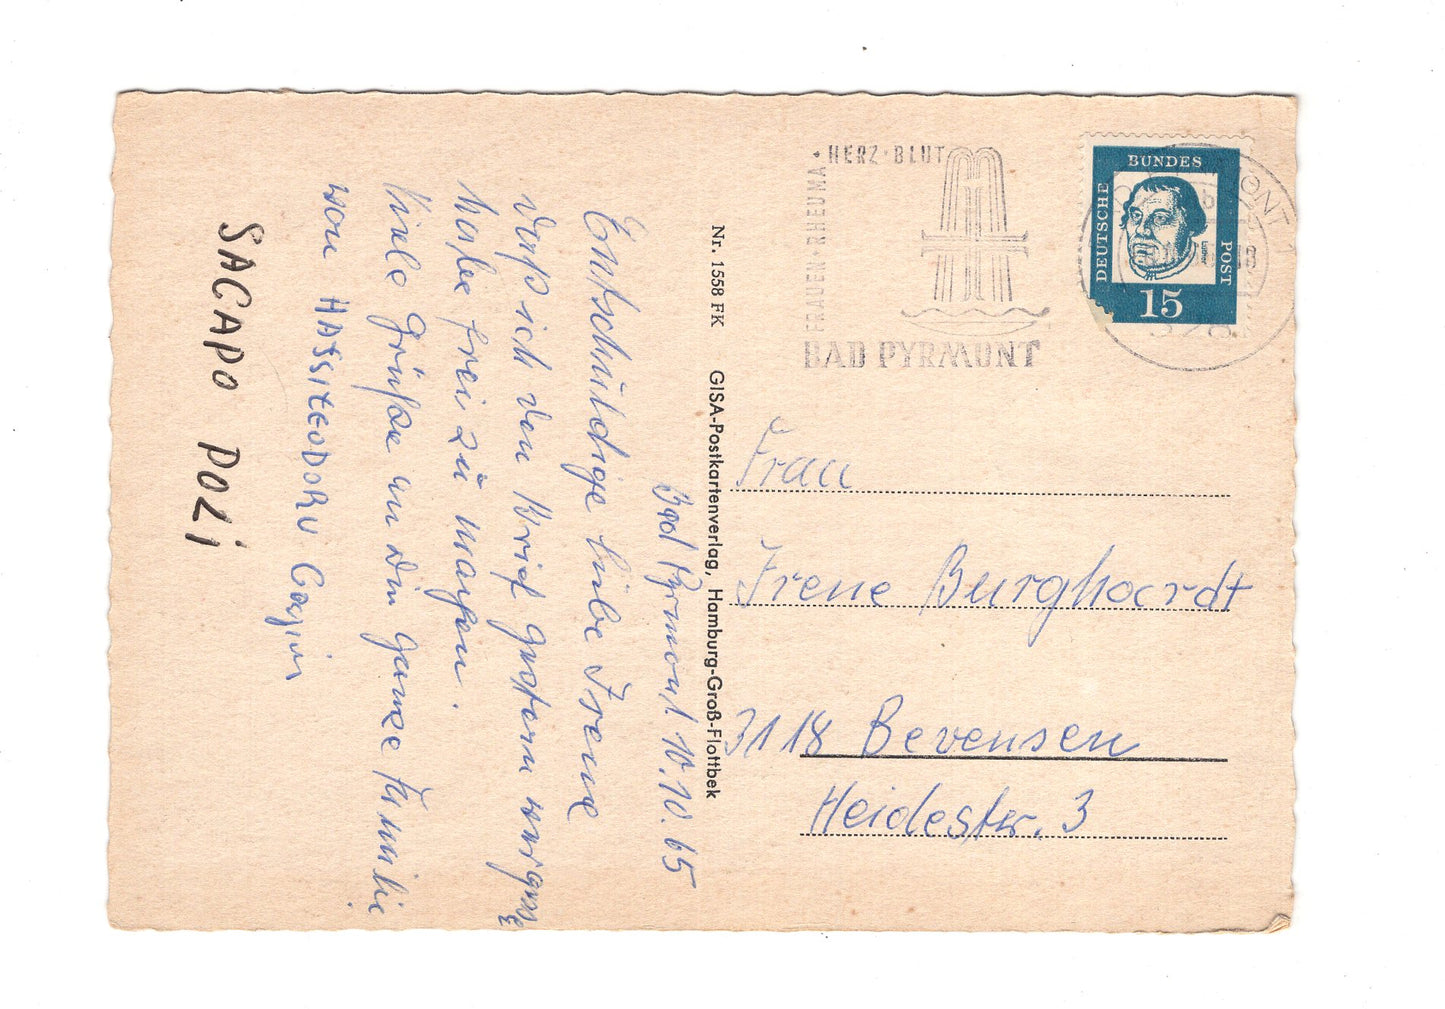 Bad Pyrmont 10.10.65
Entschuldige liebe Irene
daß ich den Brief gestern vergesse
habe frei zu machen.
Viele Grüße an Din ganze Familie
von HASSITEODORU
SACAPO POLi
Nr. 1558 FK GISA-Postkartenverlag, Hamburg-Groß-Flottbek
FRAUEN · RHEUMA · HERZ · BLUT
BAD PYRMONT
DEUTSCHE BUNDES POST
15
Frau
Irene Burghardt
3118 Bevensen
Heidestr. 3